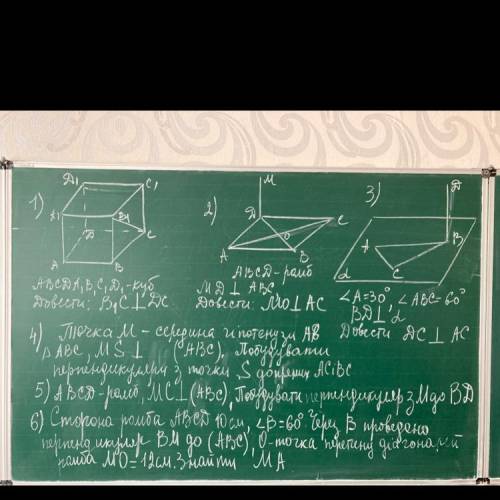 1)
Д₁
C₁
A₁
B₁
Д
C
A
B
ABCДA₁B₁C₁Д₁-куб
Довести: B₁C⊥DC
2)
M
Д
C
A
O
B
ABCD-ромб
MD⊥ABC,
Довести: MO⊥AC
3)
D
A
B
C
α
∠A=30° ∠ABC=60°
BD⊥α
Довести DC⊥AC
4) Точка M - середина гіпотенузи AB
△ABC, MS⊥ (ABC). Побудувати
перпендикуляри з точки S до прямих AC і BC
5) ABCD-ромб, MC⊥(ABC), Побудувати перпендикуляр з M до BD
6) Сторона ромба ABCD 10см, ∠B=60°. Через B проведено
перпендикуляр BM до (ABC), O-точка перетину діагоналей
ромба MO=12см. Знайти MA